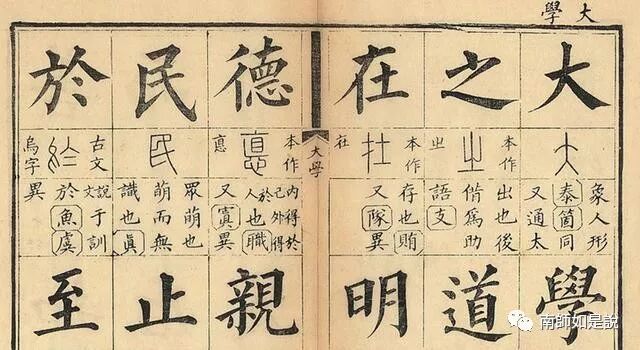 大學
大
象人形
泰箇同
又通太
學
之
本作
㞢
出也後
偕爲助
語支
道
在
在
存也賄
又隊異
明
大學
德
本作
悳
内得於
己外得於
人也職
又寘異
親
民
眾萌也
萌而無
識也眞
止
於
古文
烏字
說文于訓
於魚虞
異
至
南師如是說